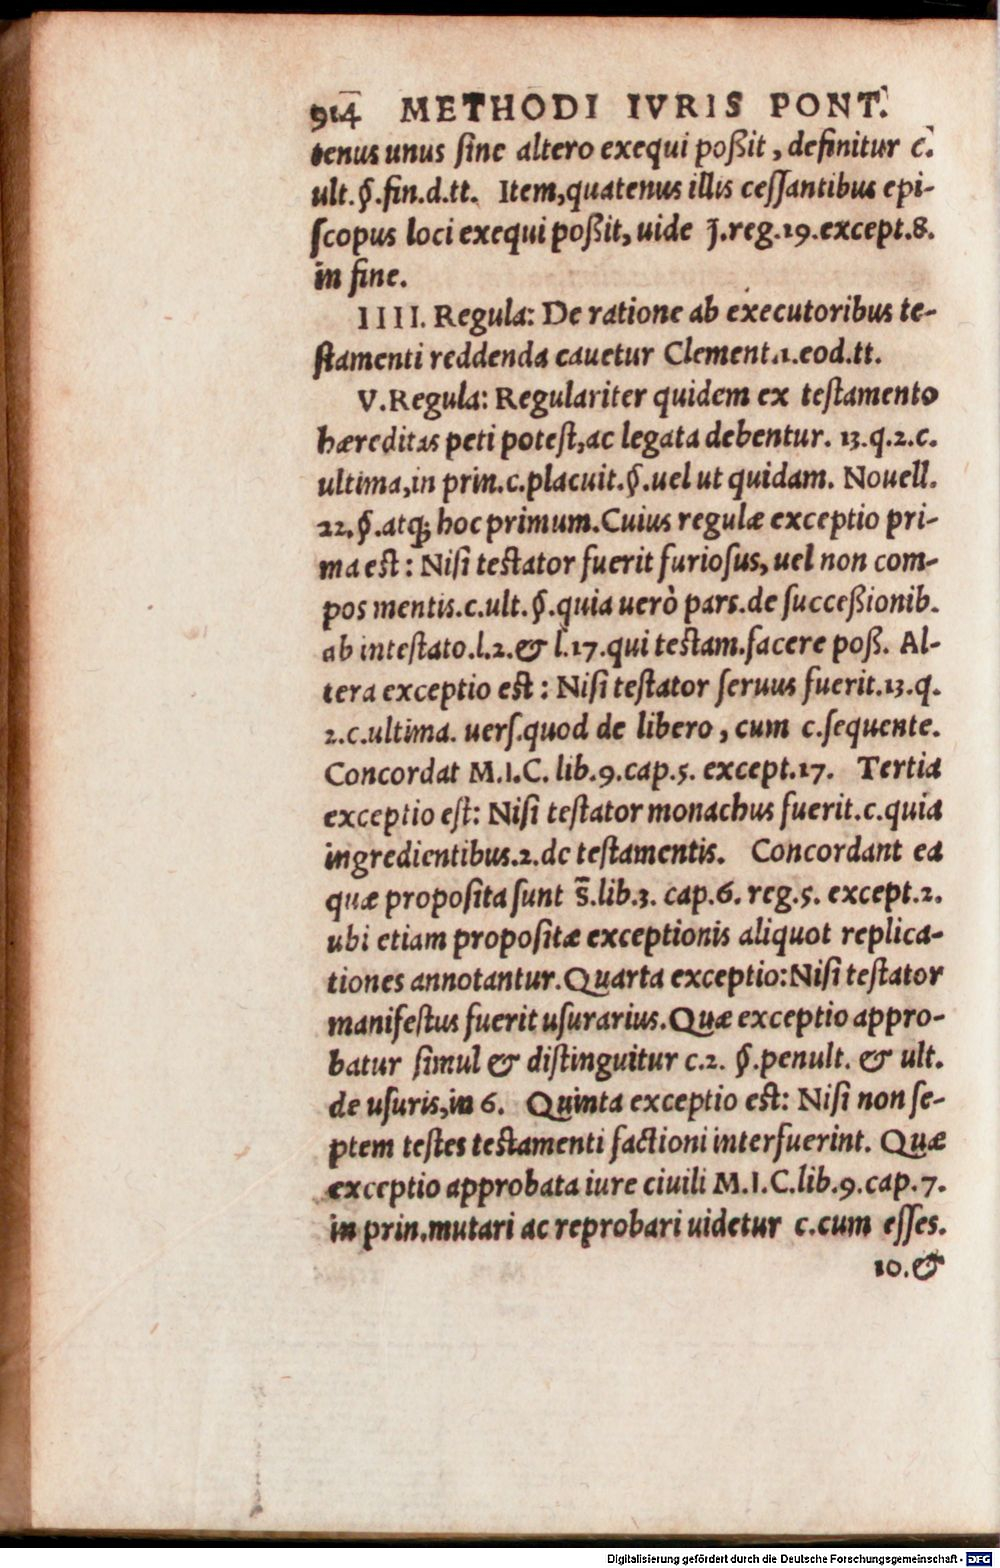 914 METHODI IVRIS PONT.
tenus unus ſine altero exequi poßit, definitur c.
ult.§.fin.d.tt. Item,quatenus illis ceſſantibus epi-
ſcopus loci exequi poßit, uide j.reg.19.except.8.
in fine.
IIII. Regula: De ratione ab executoribus te-
ſtamenti reddenda cauetur Clement.1.eod.tt.
V.Regula: Regulariter quidem ex teſtamento
hæreditas peti poteſt,ac legata debentur. 13.q.2.c.
ultima,in prin.c.placuit.§.uel ut quidam. Nouell.
22.§.atq; hoc primum.Cuius regulæ exceptio pri-
ma eſt: Niſi teſtator fuerit furioſus, uel non com-
pos mentis.c.ult.§.quia uerò pars.de succeßionib.
ab inteſtato.l.2.& l.17.qui teſtam.facere poß. Al-
tera exceptio eſt: Niſi teſtator ſeruus fuerit.13.q.
2.c.ultima. uerſ.quod de libero, cum c.ſequente.
Concordat M.I.C. lib.9.cap.5. except.17. Tertia
exceptio eſt: Niſi teſtator monachus fuerit.c.quia
ingredientibus.2.de teſtamentis. Concordant ea
quæ propoſita ſunt s̄.lib.3. cap.6. reg.5. except.2.
ubi etiam propoſitæ exceptionis aliquot replica-
tiones annotantur.Quarta exceptio:Niſi teſtator
manifeſtus fuerit uſurarius.Quæ exceptio appro-
batur ſimul & diſtinguitur c.2. §.penult. & ult.
de uſuris,in 6. Quinta exceptio eſt: Niſi non ſe-
ptem teſtes teſtamenti factioni interfuerint. Quæ
exceptio approbata iure ciuili M.I.C.lib.9.cap.7.
in prin.mutari ac reprobari uidetur c.cum eſſes.
10.&
Digitalisierung gefördert durch die Deutsche Forschungsgemeinschaft - DFG